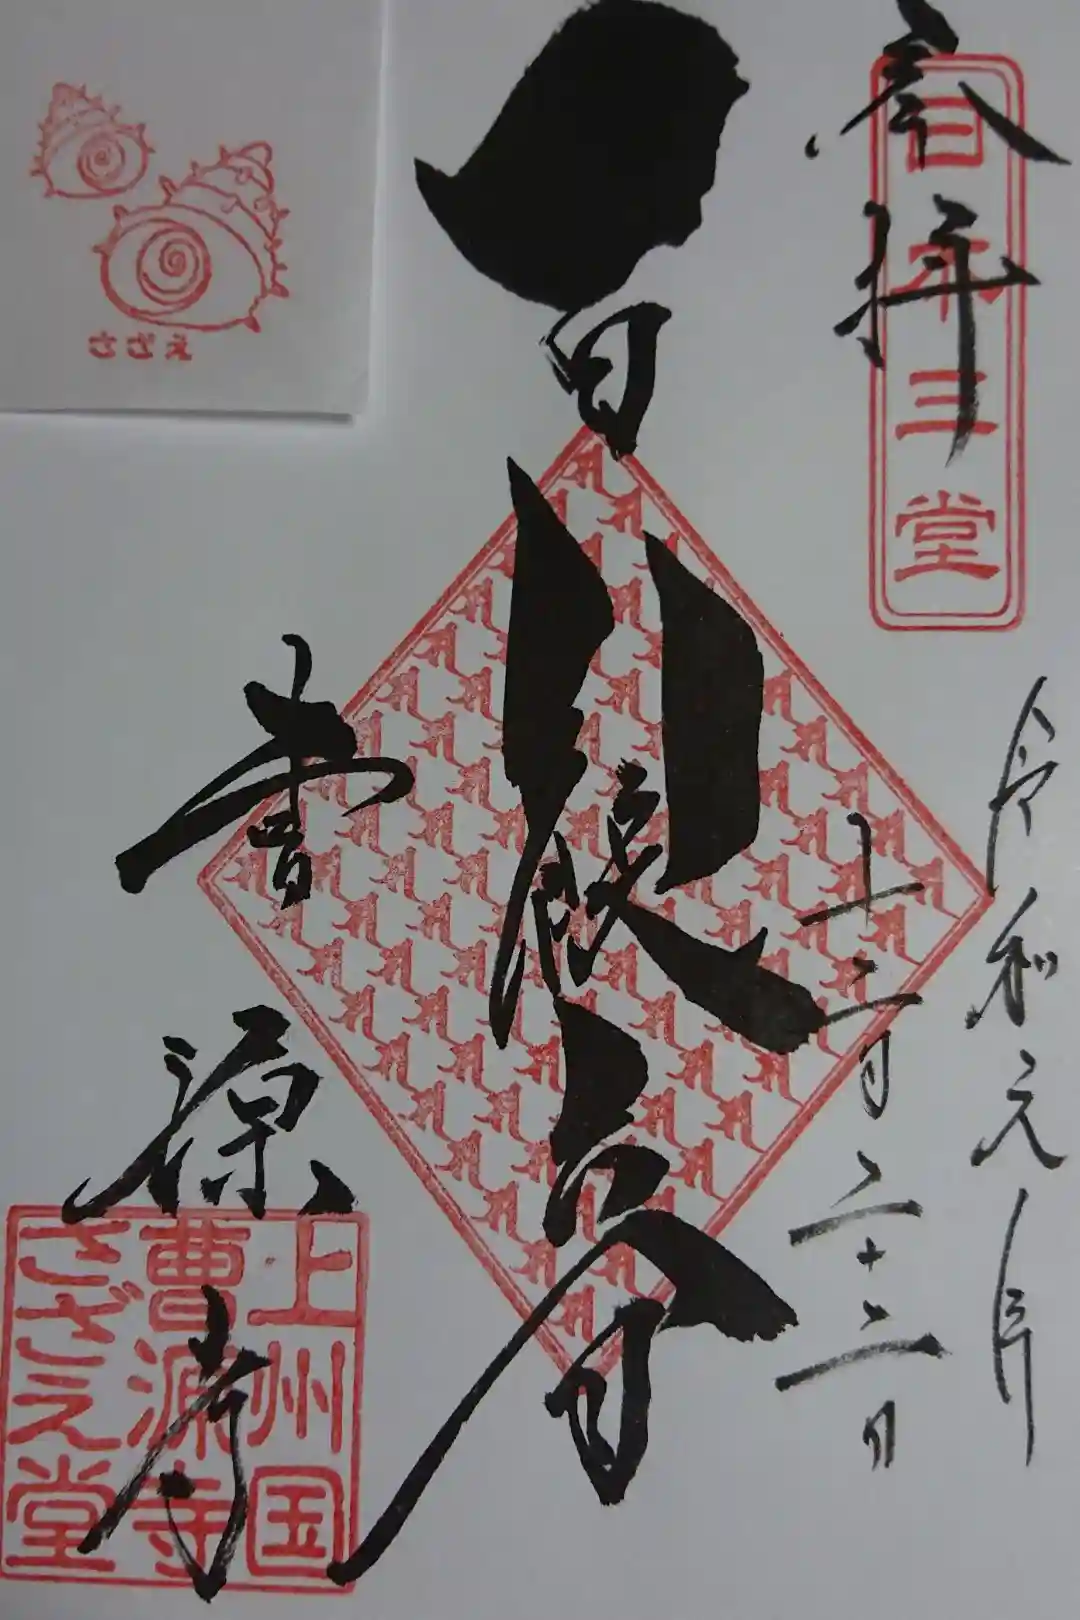 奉拝
日本三堂
令和元年
十二月二十二日
日限
曹源寺
上州国
曹源寺
さざえ堂
さざえ